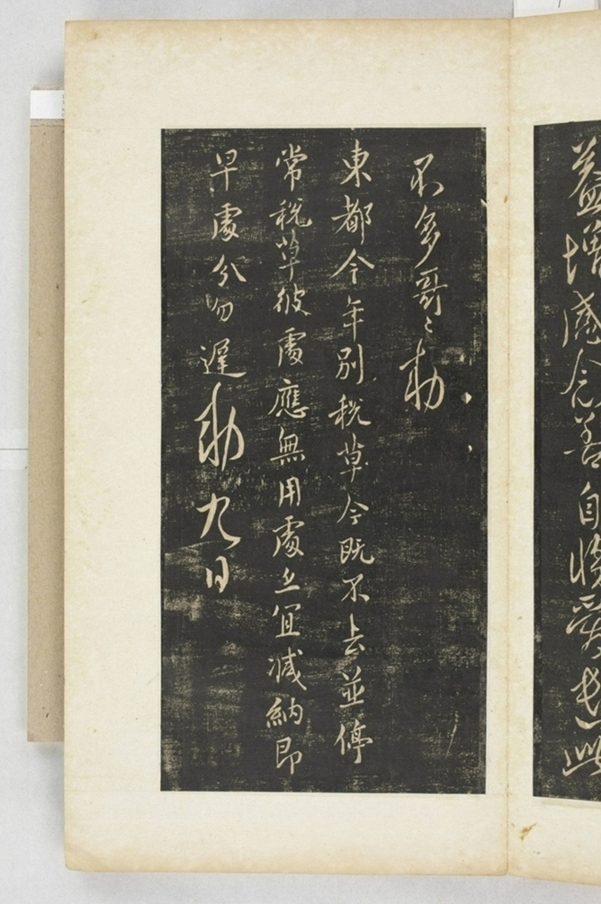 益增感念善自將愛遣此
不多哥〻敕
東都今年別稅草今既不去並停
常稅草彼處應無用處亦宜減納即
早處分勿遲敕九日